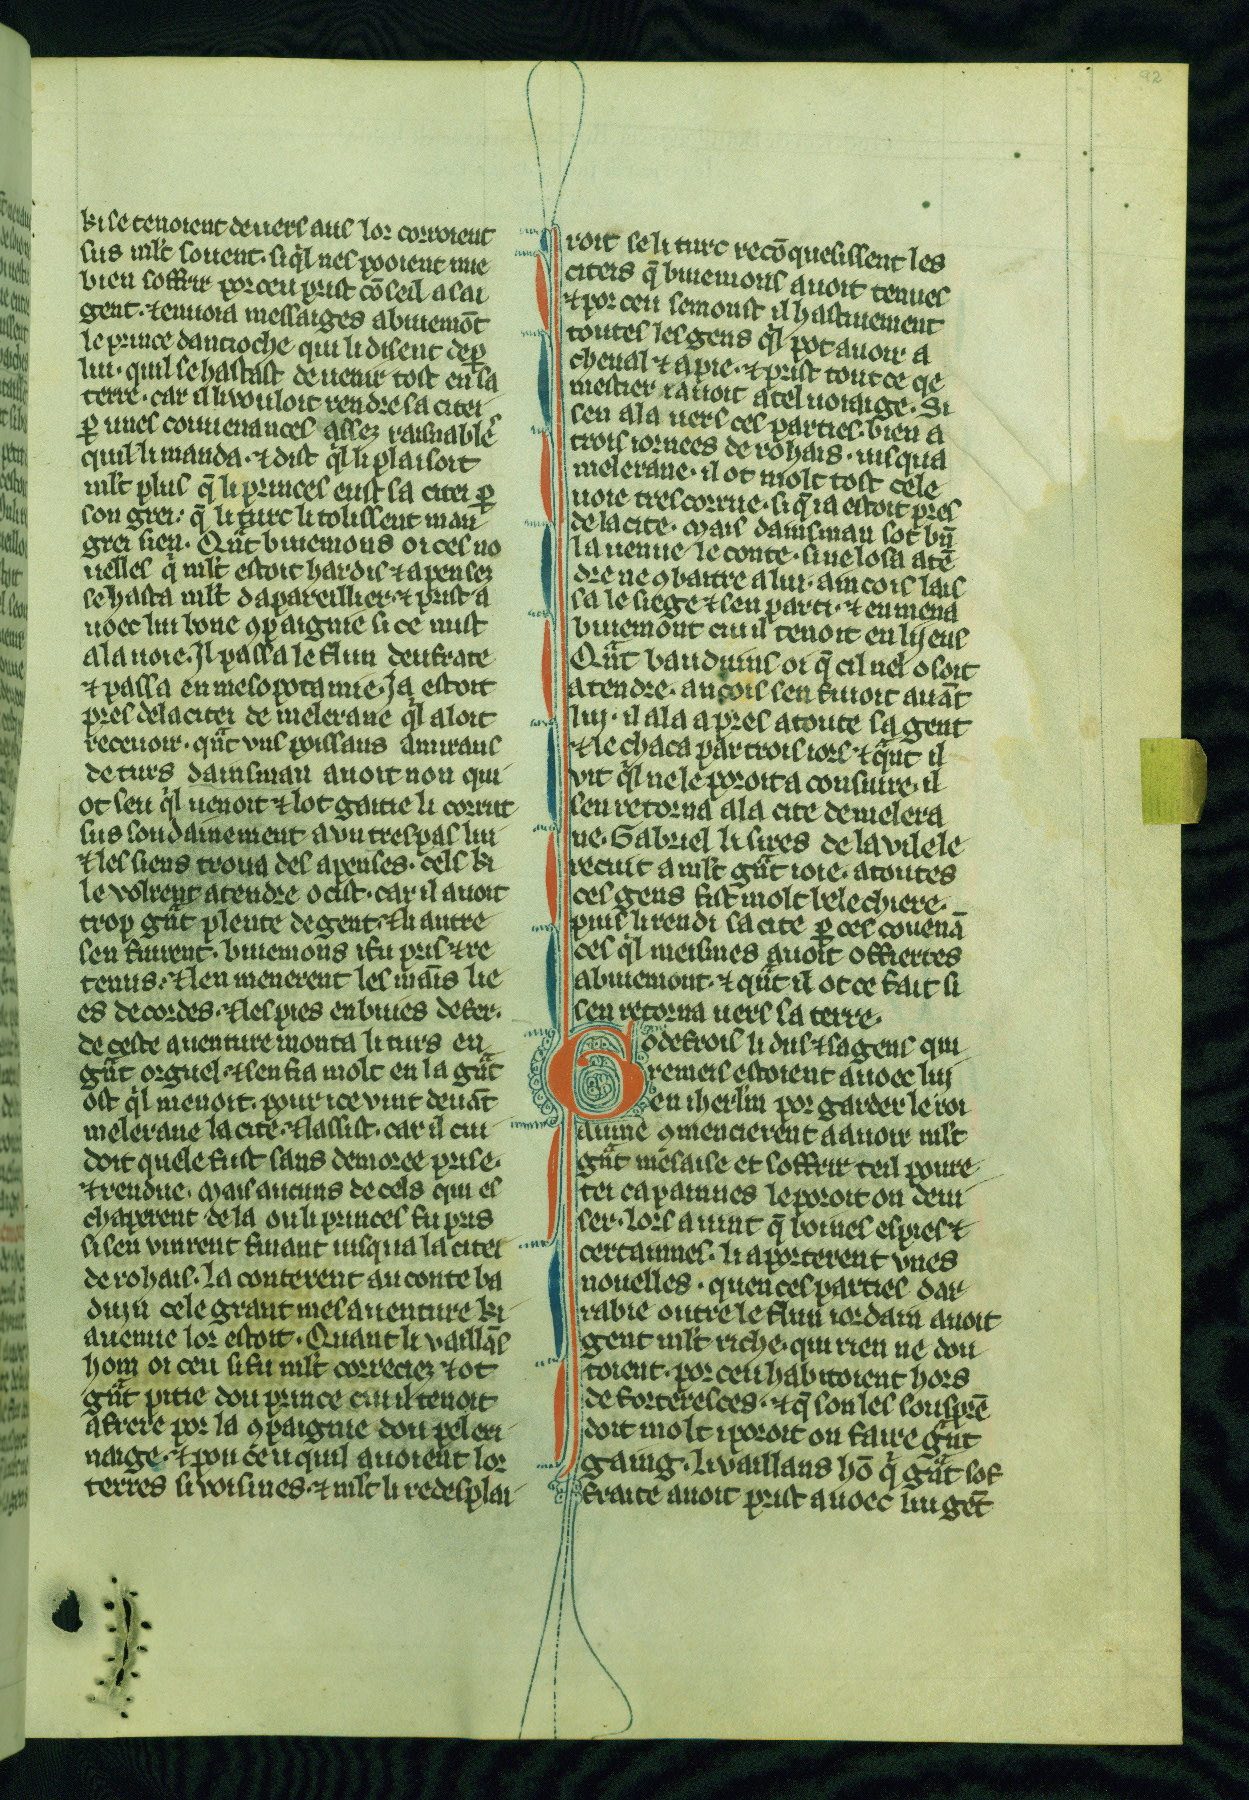 92
ki se tenoient deuers aus lor corroient
sus mlt souent. si ql nes pooient mie
bien soffrir por ceu prist cōseil a sai
gent. ⁊ enuoia messaiges a buiemōt
le prince dantioche qui li disent de p̲
lui. quil se hastast de uenir tost en sa
terre. car il li vouloit rendre sa citei
p̲ unes conuenances assez raisnable
quil li manda. ⁊ dist ql li plaisoit
mlt plus q̄ li princes eust sa citei p̲
son grei. q̄ li turc li tolissent mau
grei sien. Qu̅t buiemons oi ces no
uelles q mlt estoit hardis ⁊ apensez
se hasta mlt dapareillier. ⁊ prist a
uoec lui bone ꝯpaignie si ce mist
a la uoie. Il passa le flun deufrate
⁊ passa en mesopotamie. Ja estoit
pres de la citei de melerane ql aloit
receuoir. qu̅t vns poissans amiraus
de turs damsman auoit non qui
ot seu ql uenoit ⁊ lot gaitie li corrut
sus soudainement a vn trespas lui
⁊ les siens troua desapenses. cels ki
le volrent atendre ocist. car il auoit
trop gu̅t plente de gent. ⁊ li autre
sen fuirent. buiemons i fu pris ⁊ re
tenus. ⁊ len menerent les maīs lie
es de cordes. ⁊ les pies en buies de fer.
de ceste auenture monta li turs en
gu̅t orguel. ⁊ sen fia molt en la gu̅t
ost ql menoit. pour ice vint deuāt
melerane la cite. ⁊ lassist. car il cui
doit quele fust sans demoree prise.
⁊ rendue. Mais aucuns de cels qui es
chaperent de la ou li princes fu pris
si sen vinrent fuiant iusqua la citei
de rohais. la conterent au conte ba
duyn cele grant mesauenture ki
auenue lor estoit. Quant li vaillās
hom oi ceu si fu mlt correciez ⁊ ot
gu̅t pitie dou prince cui il tenoit
a frere por la ꝯpaignie dou peleri
naige. ⁊ pou ceu quil auoient lor
terres si voisines. ⁊ mlt li redesplai
roit se li turc recōquesissent les
citeis q̄ buiemons auoit tenues
⁊ por ceu semonst il hastiuement
toutes les gens ql pot auoir a
cheual ⁊ a pie. ⁊ prist tout ce qe
mestier i auoit a tel uoiaige. Si
sen ala uers ces parties. bien a
trois iornees de rohais. iusqua
melerane. il ot molt tost cele
uoie trescorrue. si q̄ ia estoit pres
de la cite. Mais damsman sot bn̄
la uenue le conte. si ne losa atē
dre ne ꝯbattre a lui. aincois lais
sa le siege ⁊ sen parti. ⁊ en mena
buiemont cui il tenoit en lijens
Qu̅t bauduins oi q̄ cil nel osoit
atendre. ancois sen fuioit auāt
lui. il ala apres a toute sa gent
⁊ le chaca par trois iors. ⁊ qu̅t il
vit ql ne le poroit a consuire. il
sen retorna a la cite de melera
ne. Gabriel li sires de la vile le
recuit a mlt gu̅t ioie. a toutes
ces gens fist molt bele chiere.
puis li rendi sa cite p̲ ces couenā
ces ql meismes auoit offertes
a buiemont. ⁊ qu̅t il ot ce fait si
sen retorna uers sa terre.
Godefrois li dus ⁊ sa gens qui
remeis estoient auoec lui
en iherl'm por garder le roi
aume ꝯmencierent a auoir mlt
gu̅t mesaise et soffrir teil poure
tei ca painnes le poroit on deui
ser. lors auint q̄ boines espies ⁊
certainnes. li aporterent vnes
nouelles. quen ces parties dar
rabie outre le flun iordain auoit
gent mlt riche. qui rien ne dou
toient. por ceu habitoient hors
de forteresces. ⁊ q̄ son les souspre̅
doit molt i poroit on faire gu̅t
gaing. li vaillans hō q gu̅t sof
fraite auoit prist auoec lui gēt